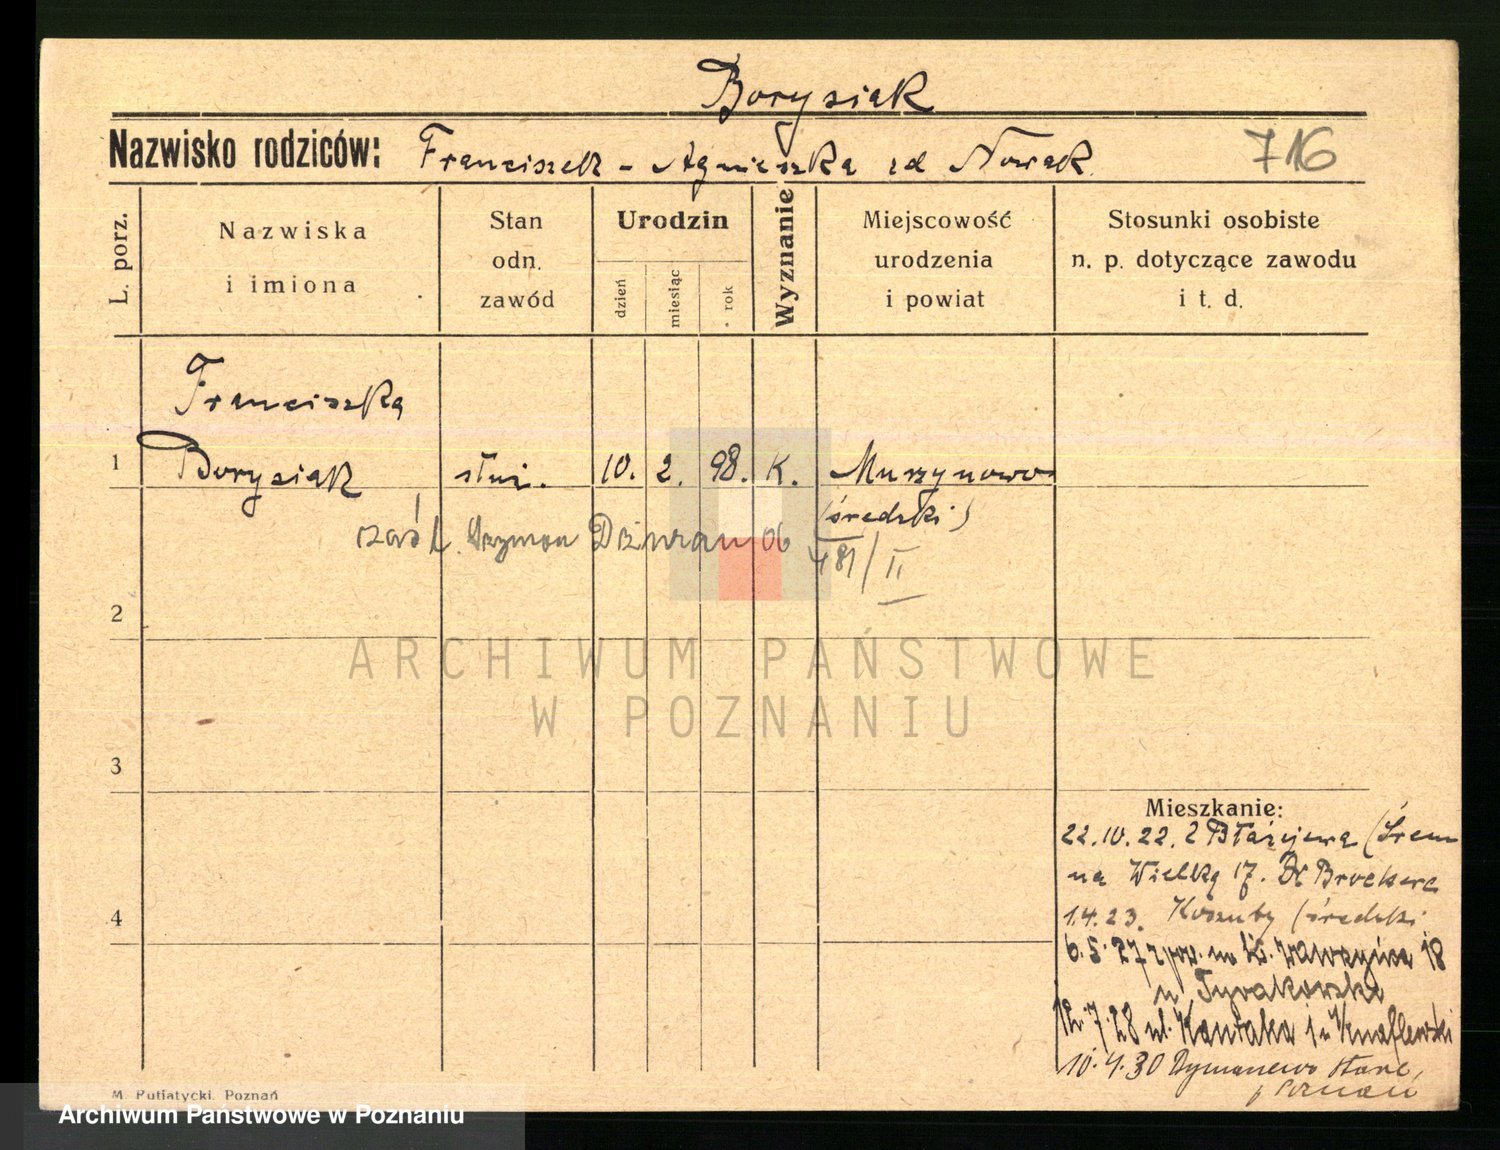 Borysiak
Nazwisko rodziców: Franciszek - Agnieszka zd Nowak
716
L. porz.
Nazwiska
i imiona
Stan
odn.
zawód
Urodzin
dzień
miesiąc
rok
Wyznanie
Miejscowość
urodzenia
i powiat
Stosunki osobiste
n. p. dotyczące zawodu
i t. d.
Franciszka
1 Borysiak służ. 10. 2. 98. K. Murzynowo
(średzki)
zaśl. Szymon 06
481/II
2
3
4
ARCHIWUM PAŃSTWOWE
W POZNANIU
Mieszkanie:
22.10.22. z Błażejewa (Śrem
na Wielką 17. Dr Broekere
1.4.23. Koszuty (średzki
6.5.27 na Św. Wawrzyńca 18
u
12.7.28 ul. Kantaka 1 u Knaflewski
10.4.30 Dymaczewo Stare,
p Poznań
M. Putiatycki, Poznań
Archiwum Państwowe w Poznaniu